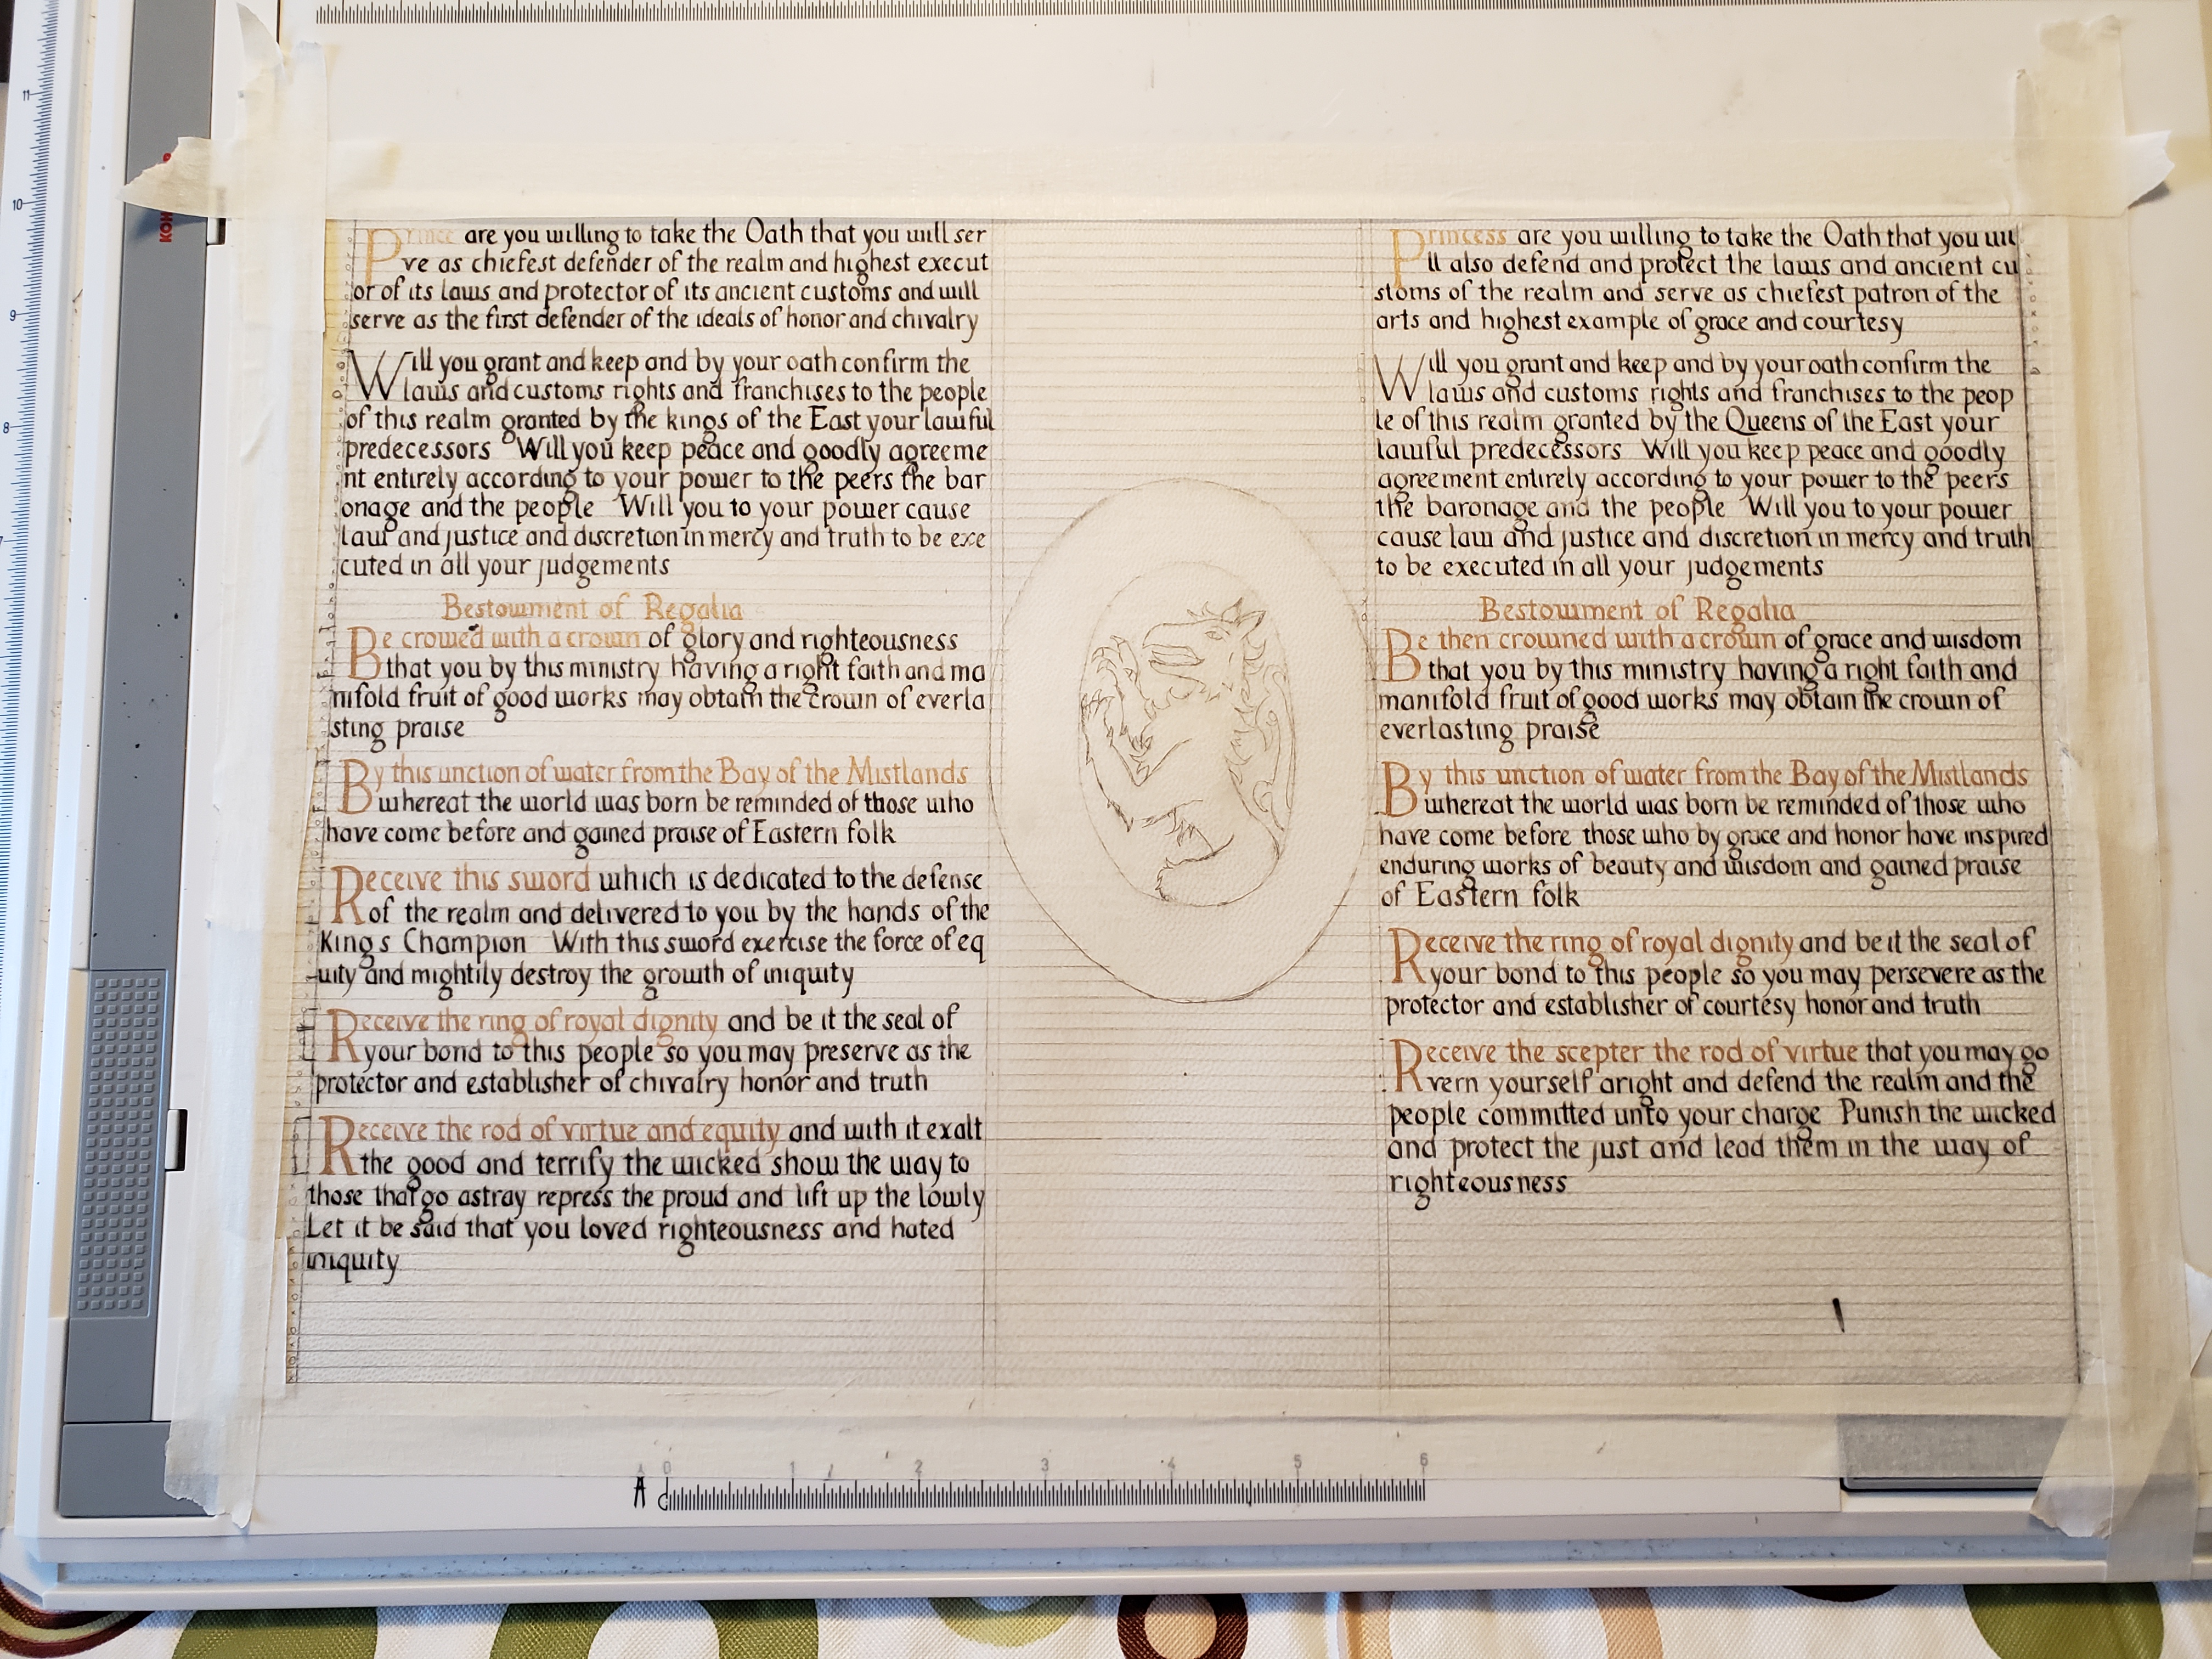 Prince are you willing to take the Oath that you will ser
ve as chiefest defender of the realm and highest execut
or of its laws and protector of its ancient customs and will
serve as the first defender of the ideals of honor and chivalry
Will you grant and keep and by your oath confirm the
laws and customs rights and franchises to the people
of this realm granted by the kings of the East your lawful
predecessors Will you keep peace and goodly agreeme
nt entirely according to your power to the peers the bar
onage and the people Will you to your power cause
law and justice and discretion in mercy and truth to be exe
cuted in all your judgements
Bestowment of Regalia
Be crowed with a crown of glory and righteousness
that you by this ministry having a right faith and ma
nifold fruit of good works may obtain the crown of everla
sting praise
By this unction of water from the Bay of the Mistlands
whereat the world was born be reminded of those who
have come before and gained praise of Eastern folk
Receive this sword which is dedicated to the defense
of the realm and delivered to you by the hands of the
King s Champion With this sword exercise the force of eq
uity and mightily destroy the growth of iniquity
Receive the ring of royal dignity and be it the seal of
your bond to this people so you may preserve as the
protector and establisher of chivalry honor and truth
Receive the rod of virtue and equity and with it exalt
the good and terrify the wicked show the way to
those that go astray repress the proud and lift up the lowly
Let it be said that you loved righteousness and hated
iniquity
Princess are you willing to take the Oath that you wi
ll also defend and protect the laws and ancient cu
stoms of the realm and serve as chiefest patron of the
arts and highest example of grace and courtesy
Will you grant and keep and by your oath confirm the
laws and customs rights and franchises to the peop
le of this realm granted by the Queens of the East your
lawful predecessors Will you keep peace and goodly
agreement entirely according to your power to the peers
the baronage and the people Will you to your power
cause law and justice and discretion in mercy and truth
to be executed in all your judgements
Bestowment of Regalia
Be then crowned with a crown of grace and wisdom
that you by this ministry having a right faith and
manifold fruit of good works may obtain the crown of
everlasting praise
By this unction of water from the Bay of the Mistlands
whereat the world was born be reminded of those who
have come before those who by grace and honor have inspired
enduring works of beauty and wisdom and gained praise
of Eastern folk
Receive the ring of royal dignity and be it the seal of
your bond to this people so you may persevere as the
protector and establisher of courtesy honor and truth
Receive the scepter the rod of virtue that you may go
vern yourself aright and defend the realm and the
people committed unto your charge Punish the wicked
and protect the just and lead them in the way of
righteousness
11
10
9
8
A 0 1 2 3 4 5 6